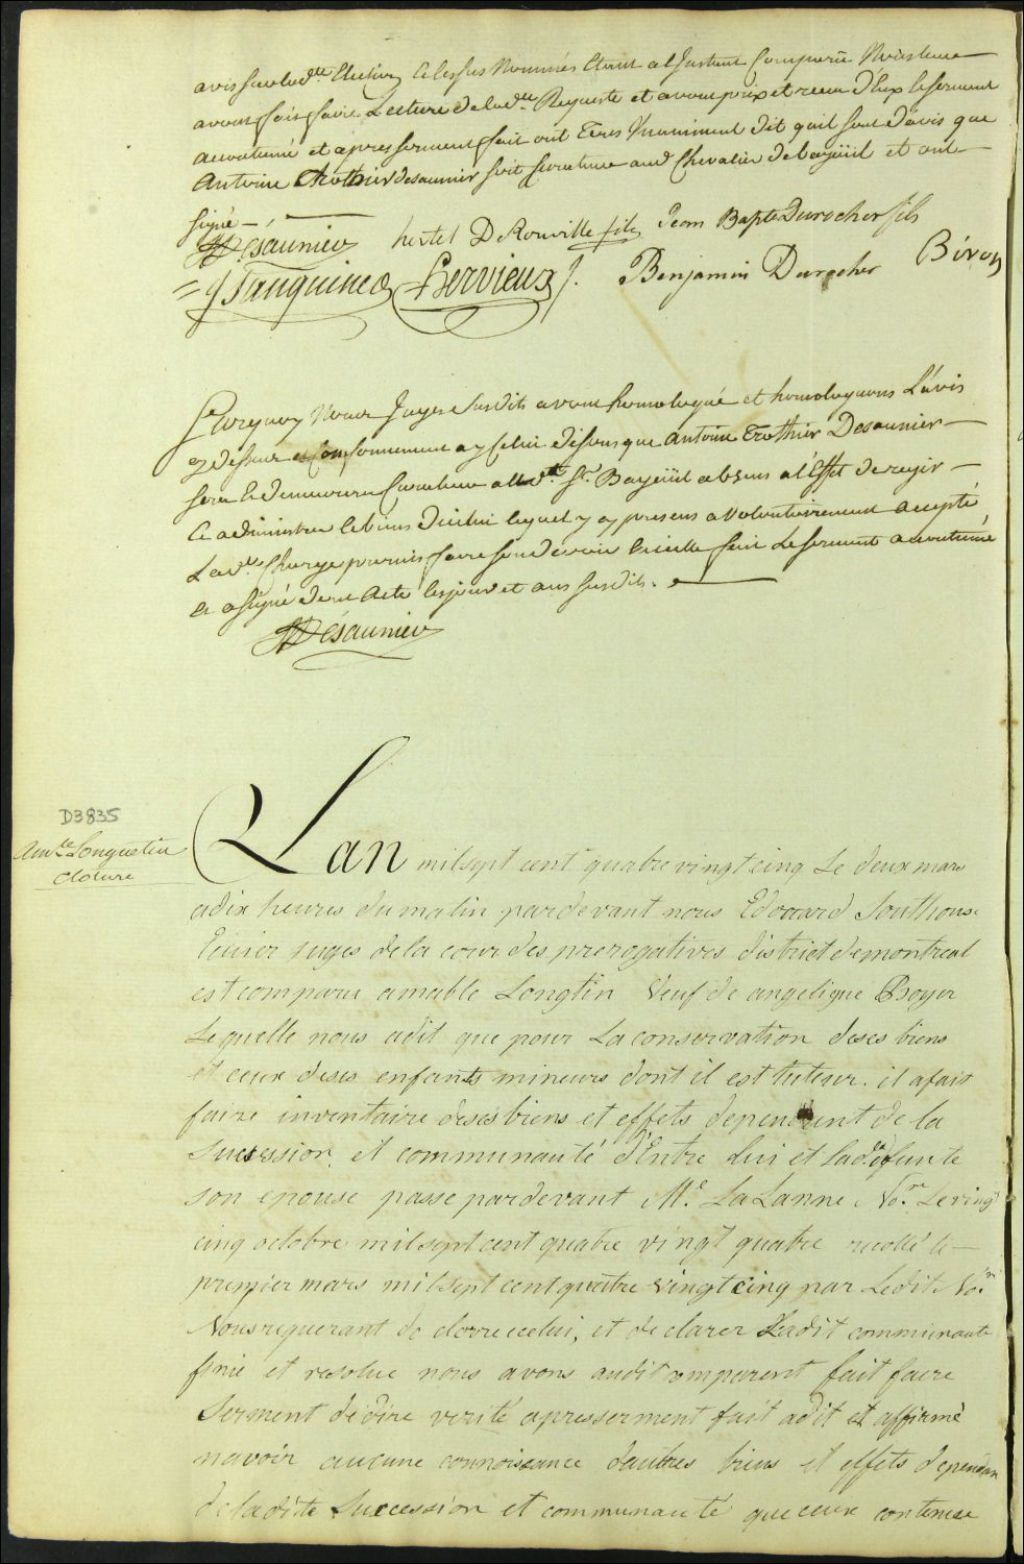 avis sur lad.te Election Et les sus Nommés étant a l'Instant Comparus Nous leur
avons fait faire Lecture de lad.te Requeste et avons pris et receu d'Eux le serment
accoutumé et apres serment fait ont tous Unanimment dit quil sont d'avis que
Antoine Trothier desaunier soit Curateur aud Chevalier de bayüil et ont
signé —
Désaunier hertel DeRouville fils Jean Bapte Durocher fils
J Sanguinet Hervieux f. Benjamin Durocher Biron
Surquoy Nous Juges Susdits avons homologué et homologuons L'avis
cy dessus et Conformement a y Celui disons que Antoine Trothier Desaunier —
sera et demeurera Curateur audt Sr Bayüil absens a l'Effet de regir —
Et administrer les biens d'icelui lequel y cy presens a volontairement accepté
Lad.te Charge promis faire son devoir en icelle fait Le serment accoutumé
et a signé dont Acte les jour et ans susdits.
Désaunier
D3835
Amble Longuetin
cloture
Lan mil sept cent quatre vingt cinq Le deux mars
a dix heures du matin pardevant nous Edouard Southouse
Ecuier juges de la cour des prerogatives district de montreal
est comparu amable Longtin Veuf de angelique Boyer
Lequelle nous adit que pour La conservation de ses biens
et ceux de ses enfants mineurs dont il est tuteur. il a fait
faire inventaire de ses biens et effets dependent de la
Sucession et communauté d'Entre Lui et Lad.e defunte
son epouse passe pardevant M.e LaLanne No.re Le vingt
cinq octobre mil sept cent quatre vingt quatre recollé le —
premier mars mil sept cent quatre vingt cinq par Ledit No.re
Nous requerant de clorre icelui, et declarer Ladit communaute
finie et resolue nous avons audit comparent fait faire
Serment de dire verité apres serment fait adit et affirmé
navoir aucune connoissance dautres biens et effets dependan
de ladite Succession et communauté que ceux contenue